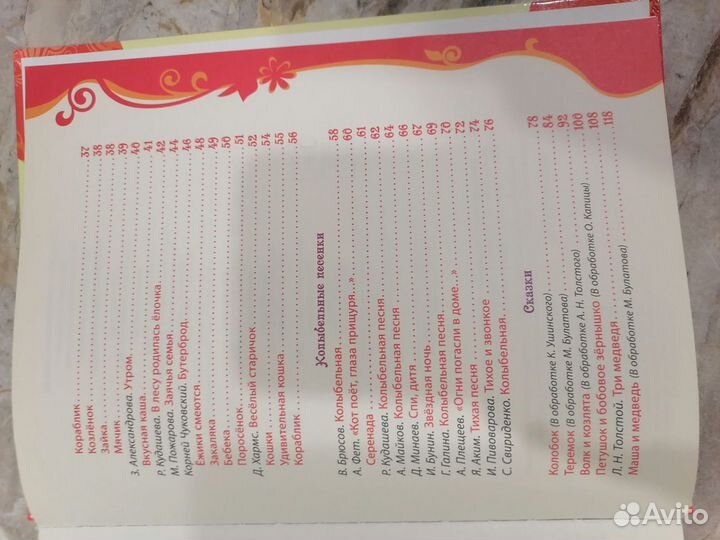 Кораблик 37
Козлёнок 38
Зайка 38
Мячик 39
З. Александрова. Утром 40
Вкусная каша 41
Р. Кудашева. В лесу родилась ёлочка 42
М. Пожарова. Заячья семья 44
Корней Чуковский. Бутерброд 46
Ёжики смеются 48
Закаляка 49
Бебека 50
Поросёнок 51
Д. Хармс. Весёлый старичок 52
Кошки 54
Удивительная кошка 55
Кораблик 56
Колыбельные песенки
В. Брюсов. Колыбельная 58
А. Фет. «Кот поёт, глаза прищуря...» 60
Серенада 61
Р. Кудашева. Колыбельная песня 62
А. Майков. Колыбельная песня 64
Д. Минаев. Спи, дитя 66
И. Бунин. Звёздная ночь 67
Г. Галина. Колыбельная песня 69
А. Плещеев. «Огни погасли в доме...» 70
Я. Аким. Тихая песня 72
И. Пивоварова. Тихое и звонкое 74
С. Свириденко. Колыбельная 76
Сказки
Колобок (В обработке К. Ушинского) 78
Теремок (В обработке М. Булатова) 84
Волк и козлята (В обработке А. Н. Толстого) 92
Петушок и бобовое зёрнышко (В обработке О. Капицы) 100
Л. Н. Толстой. Три медведя 108
Маша и медведь (В обработке М. Булатова) 118
Avito